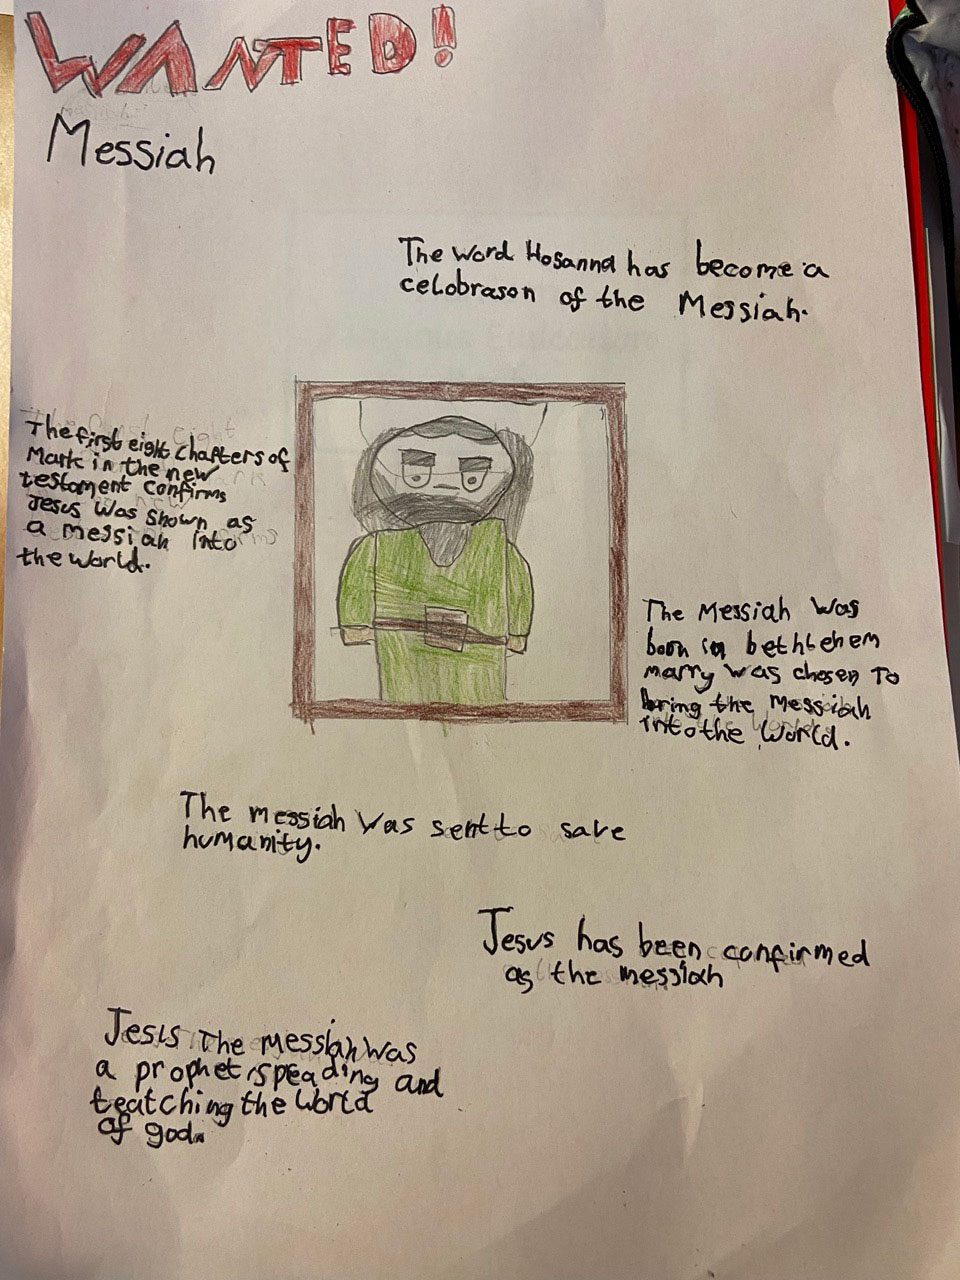 WANTED!
Messiah
The word Hosanna has become a
celobrason of the Messiah.
The first eight chapters of
Mark in the new
testament confirms
Jesus was shown as
a messiah into
the world.
The Messiah was
born in bethlehem
marry was chosen To
bring the Messiah
into the World.
The messiah was sent to save
humanity.
Jesus has been confirmed
as the messiah
Jesus The messiah was
a prophet speading and
teatching the world
of god.